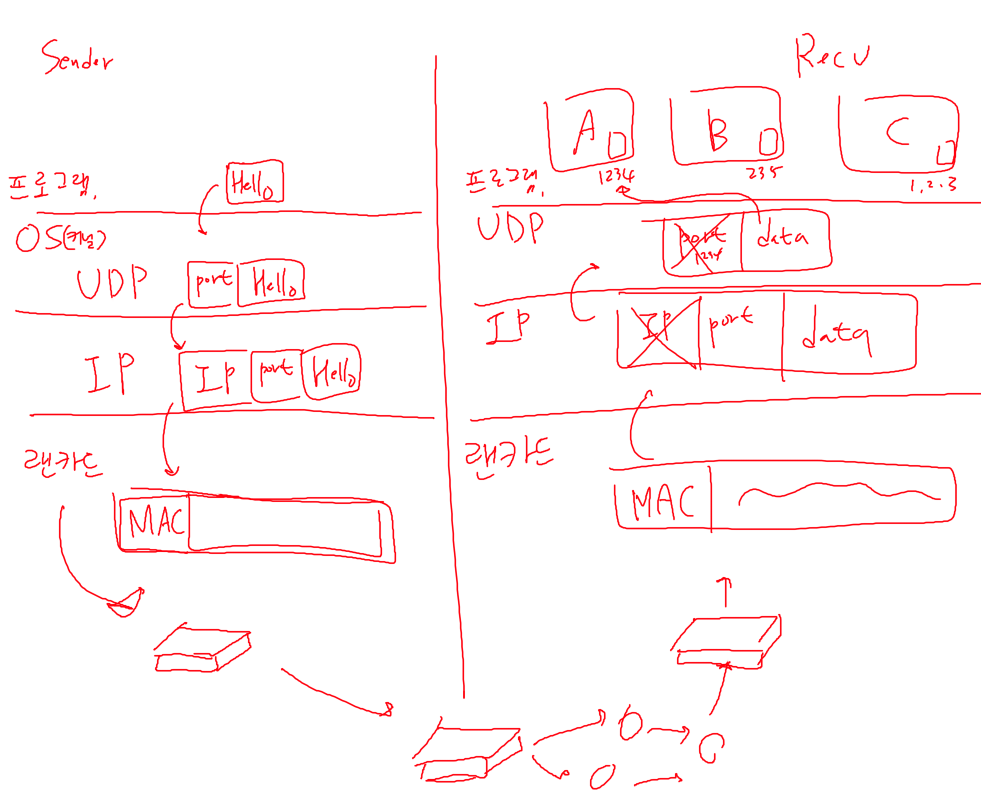 Sender
프로그램.
Hello
OS(커널)
UDP
port Hello
IP
IP port Hello
랜카드
MAC
Recv
A B C
프로그램. 1234 235 1,2,3
UDP
port 1234 data
IP
IP port data
랜카드
MAC